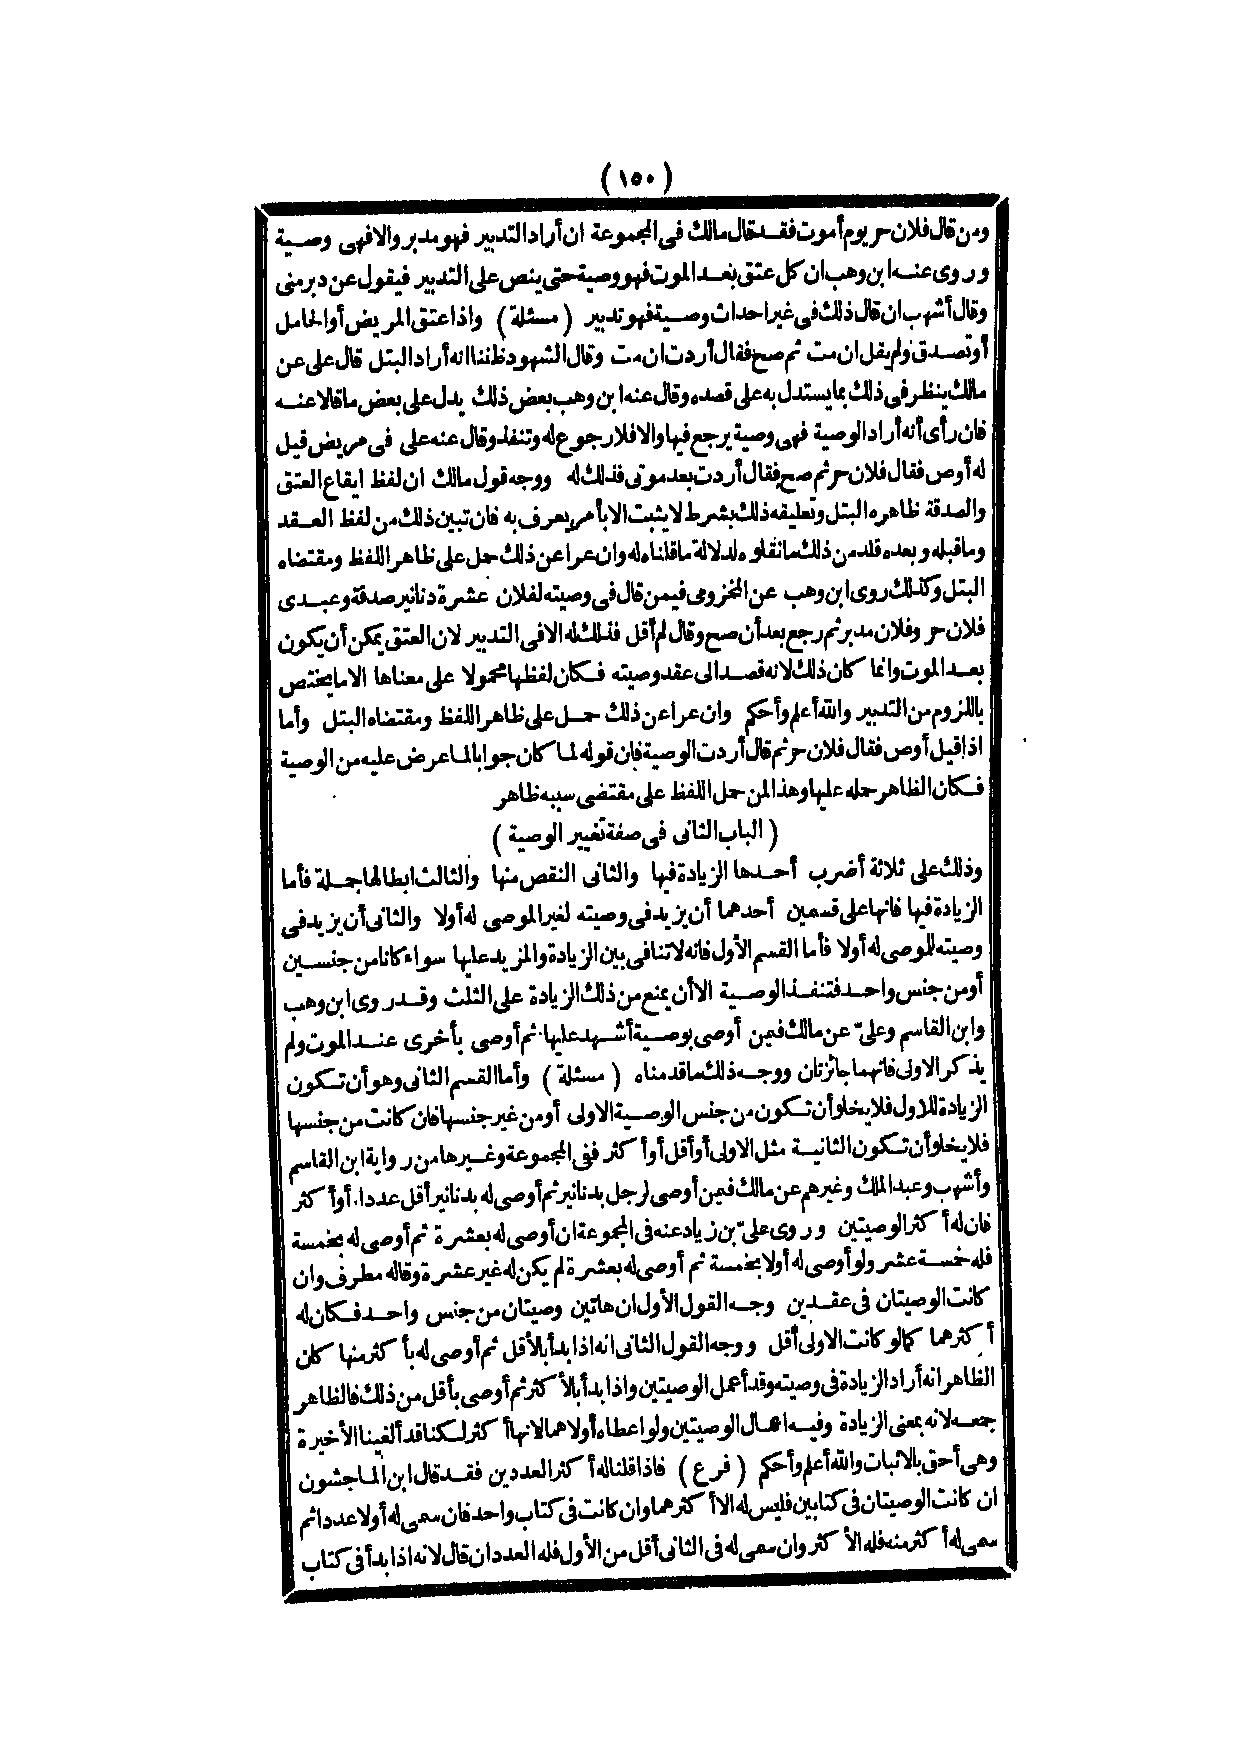 (١٥٠)
ومن قال فلان حر يوم أموت فقد قال مالك في المجموعة ان أراد التدبير فهو مدبر والا فهى وصية
وروى عنه ابن وهب ان كل عتق بعد الموت فهو وصية حتى ينص على التدبير فيقول عن دبر منى
وقال أشهب ان قال ذلك فى غير احداث وصية فهو تدبير (مسئلة) واذا عتق المريض أوالحامل
أو تصدق ولم يقل ان مت ثم صح فقال أردت ان مت وقال الشهود ظننا انه أراد البتل قال على عن
مالك ينظر فى ذلك بما يستدل به على قصده وقال عنه ابن وهب بعض ذلك يدل على بعض ما قالا عنه
فان رأى أنه أراد الوصية فهى وصية يرجع فيها والا فلا رجوع له وتنفذ وقال عنه على فى مريض قيل
له أوص فقال فلان حر ثم صح فقال أردت بعد موتى فذلك له ووجه قول مالك ان لفظ ايقاع العتق
والصدقة ظاهره البتل وتعليقه ذلك بشرط لا يثبت الا بأمر يعرف به فان تبين ذلك من لفظ العقد
وما قبله وبعده قلد من ذلك ما تقلوه لدلالة ما قلناه له وان عرا عن ذلك حمل على ظاهر اللفظ ومقتضاه
البتل وكذلك روى ابن وهب عن المخزومى فيمن قال فى وصيته لفلان عشرة دنانير صدقة وعبدى
فلان حر وفلان مدبر ثم رجع بعد أن صح وقال لم أقل فذلك له الا فى التدبير لان العتق يمكن أن يكون
بعد الموت وانما كان ذلك لانه قصد الى عقد وصيته فكان لفظها محمولا على معناها الا ما يختص
باللزوم من التدبير والله أعلم وأحكم وان عرا عن ذلك حمل على ظاهر اللفظ ومقتضاه البتل وأما
اذا قيل أوص فقال فلان حر ثم قال أردت الوصية فان قوله لما كان جوابا لما عرض عليه من الوصية
فكان الظاهر حمله عليها وهذا لمن حمل اللفظ على مقتضى سببه ظاهر
(الباب الثانى فى صفة تغيير الوصية)
وذلك على ثلاثة أضرب أحدها الزيادة فيها والثانى النقص منها والثالث ابطالها جملة فأما
الزيادة فيها فانها على قسمين أحدهما أن يزيد فى وصيته لغير الموصى له أولا والثانى أن يزيد فى
وصيته للموصى له أولا فأما القسم الأول فانه لا تنافى بين الزيادة والمزيد عليها سواء كانا من جنسين
أو من جنس واحد فتنفذ الوصية الا أن يمنع من ذلك الزيادة على الثلث وقد روى ابن وهب
وابن القاسم وعلىّ عن مالك فيمن أوصى بوصية أشهد عليها ثم أوصى بأخرى عند الموت ولم
يذكر الاولى فانهما جائزتان ووجه ذلك ما قدمناه (مسئلة) وأما القسم الثانى وهو أن تكون
الزيادة للاول فلا يخلو أن تكون من جنس الوصية الاولى أو من غير جنسها فان كانت من جنسها
فلا يخلو أن تكون الثانية مثل الاولى أو أقل أو أكثر ففى المجموعة وغيرها من رواية ابن القاسم
وأشهب وعبد الملك وغيرهم عن مالك فيمن أوصى لرجل بدنانير ثم أوصى له بدنانير أقل عددا أو أكثر
فان له أكثر الوصيتين وروى علىّ بن زياد عنه فى المجموعة ان أوصى له بعشرة ثم أوصى له بخمسة
فله خمسة عشر ولو أوصى له أولا بخمسة ثم أوصى له بعشرة لم يكن له غير عشرة وقاله مطرف وان
كانت الوصيتان فى عقدين وجه القول الأول ان هاتين وصيتان من جنس واحد فكان له
أكثرهما كما لو كانت الاولى أقل ووجه القول الثانى انه اذا بدأ بالأقل ثم أوصى له بأكثر منها كان
الظاهر انه أراد الزيادة فى وصيته وقد أعمل الوصيتين واذا بدأ بالأكثر ثم أوصى بأقل من ذلك فالظاهر
جمعه لانه بمعنى الزيادة وفيه اعمال الوصيتين ولو اعطاه أولاهما لانها أكثر لكنا قد ألغينا الأخيرة
وهى أحق بالاثبات والله أعلم وأحكم (فرع) فاذا قلنا له أكثر العددين فقد قال ابن الماجشون
ان كانت الوصيتان فى كتابين فليس له الا أكثرهما وان كانت فى كتاب واحد فان سمى له أولا عددا ثم
سمى له أكثر منه فله الأكثر وان سمى له فى الثانى أقل من الأول فله العددان قال لانه اذا بدأ فى كتاب